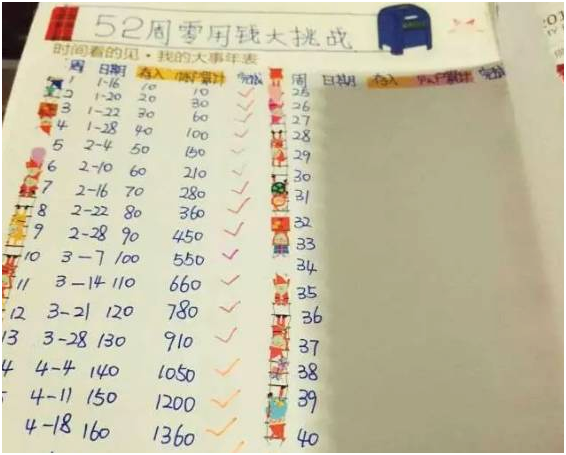 52周零用钱大挑战
时间看的见·我的大事年表
周 日期 存入 账户累计 完成
1 1-16 10 10
2 1-20 20 30
3 1-22 30 60
4 1-28 40 100
5 2-4 50 150
6 2-10 60 210
7 2-16 70 280
8 2-22 80 360
9 2-28 90 450
10 3-7 100 550
11 3-14 110 660
12 3-21 120 780
13 3-28 130 910
4 4-4 140 1050
4-11 150 1200
4-18 160 1360
周 日期 存入 账户累计 完成
25
26
27
28
29
30
31
32
33
34
35
36
37
38
39
40